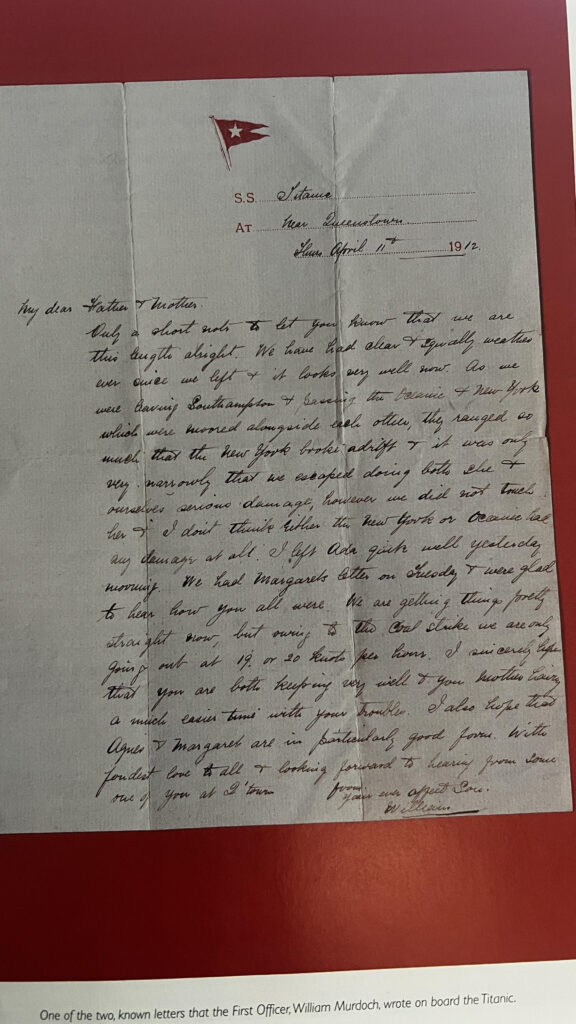 S.S. Titanic
AT near Queenstown
Thurs April 11th 1912.
My dear Father & Mother
Only a short note to let you know that we are
this length alright. We have had clear & squally weather
ever since we left & it looks very well now. As we
were leaving Southampton & passing the Oceanic & New York
which were moored alongside each other, they ranged so
much that the New York broke adrift & it was only
very narrowly that we escaped doing both she &
ourselves serious damage, however we did not touch
her & I don't think either the New York or Oceanic had
any damage at all. I left Ada quite well yesterday
morning. We had Margarets letter on Tuesday & were glad
to hear how you all were. We are getting things pretty
straight now, but owing to the Coal strike we are only
going out at 19. or 20 knots per hour. I sincerely hope
that you are both keeping very well & you Mother having
a much easier time with your troubles. I also hope that
Agnes & Margaret are in particularly good form. With
fondest love to all & looking forward to hearing from some
one of you at Q'town
from
your ever affect Son.
William
One of the two, known letters that the First Officer, William Murdoch, wrote on board the Titanic.